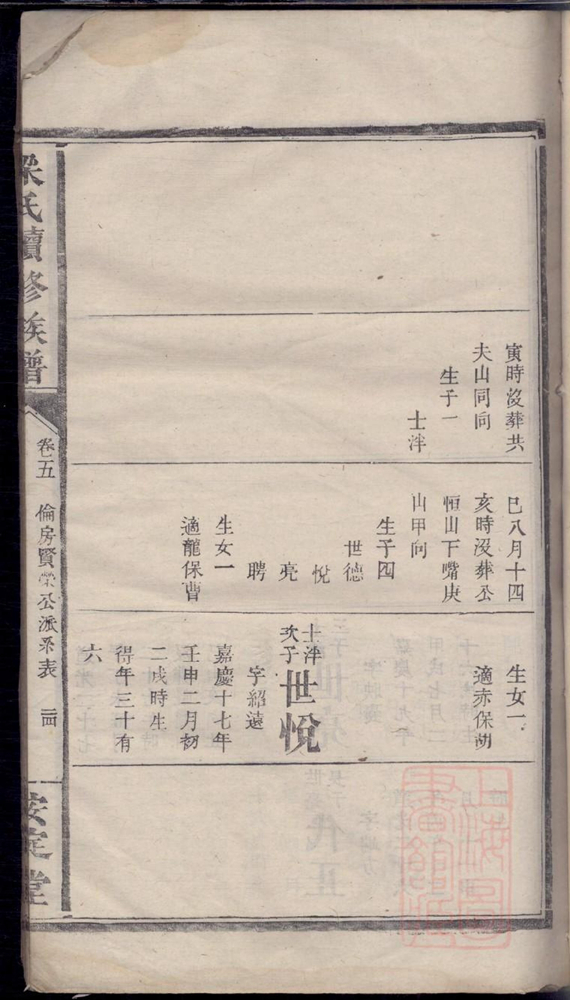 寅時沒葬共
夫山同向
生子一
士泮
巳八月十四
亥時沒葬公
恒山下嘴庚
山甲向
生子四
世德
悅
亮
聘
生女一
適龍保曹
生女一
適赤保胡
士泮
次子
世悅
字紹遠
嘉慶十七年
壬申二月初
二戌時生
得年三十有
六
梁氏續修族譜
卷五 倫房賢榮公派系表
安定堂